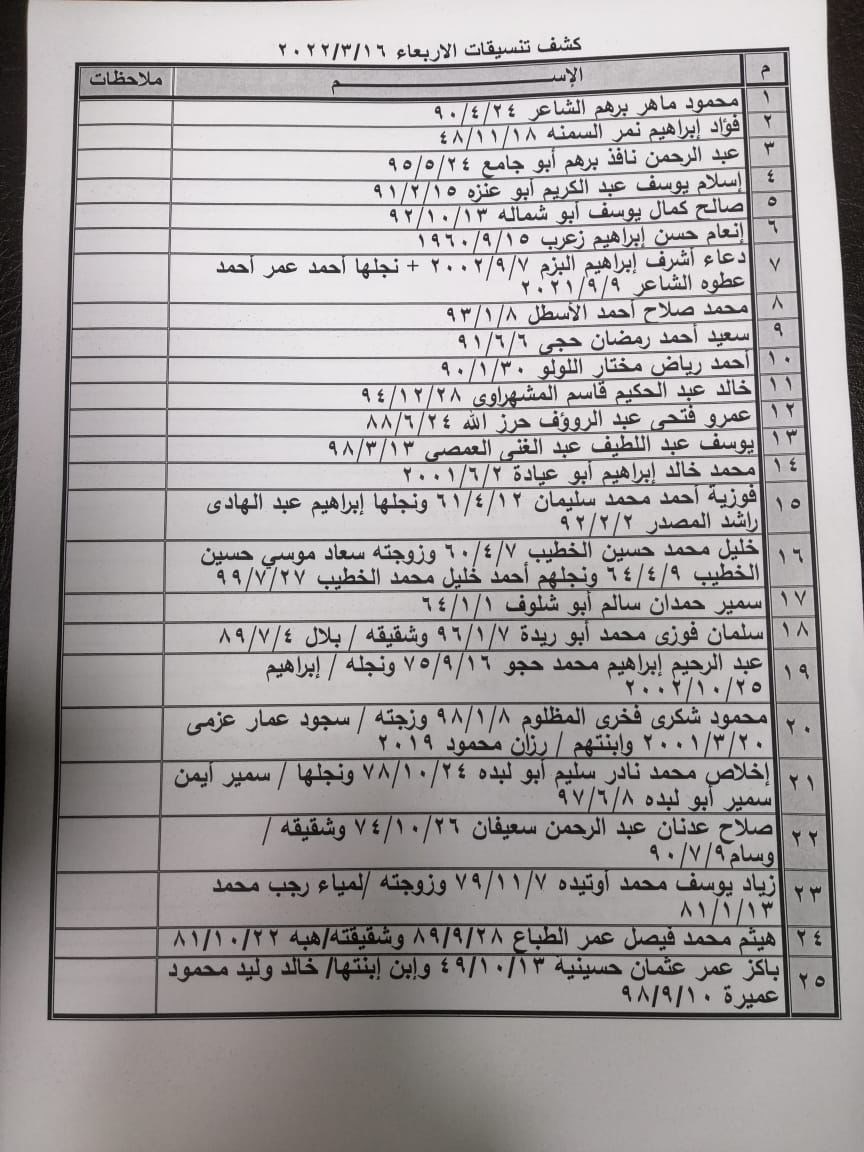 كشف تنسيقات الاربعاء ٢٠٢٢/٣/١٦
م الإســـــم ملاحظات
١ محمود ماهر برهم الشاعر ٩٠/٤/٢٤
٢ فؤاد إبراهيم نمر السمنه ٤٨/١١/١٨
٣ عبد الرحمن نافذ برهم أبو جامع ٩٥/٥/٢٤
٤ إسلام يوسف عبد الكريم أبو عنزه ٩١/٢/١٥
٥ صالح كمال يوسف أبو شماله ٩٢/١٠/١٣
٦ إنعام حسن إبراهيم زعرب ١٩٦٠/٩/١٥
٧ دعاء أشرف إبراهيم البزم ٢٠٠٢/٩/٧ + نجلها أحمد عمر أحمد
عطوه الشاعر ٢٠٢١/٩/٩
٨ محمد صلاح أحمد الأسطل ٩٣/١/٨
٩ سعيد أحمد رمضان حجى ٩١/٦/٦
١٠ أحمد رياض مختار اللولو ٩٠/١/٣٠
١١ خالد عبد الحكيم قاسم المشهراوى ٩٤/١٢/٢٨
١٢ عمرو فتحى عبد الرووؤف حرز الله ٨٨/٦/٢٤
١٣ يوسف عبد اللطيف عبد الغنى العمصى ٩٨/٣/١٣
١٤ محمد خالد إبراهيم أبو عيادة ٢٠٠١/٦/٢
١٥ فوزية أحمد محمد سليمان ٦١/٤/١٢ ونجلها إبراهيم عبد الهادى
راشد المصدر ٩٢/٢/٢
١٦ خليل محمد حسين الخطيب ٦٠/٤/٧ وزوجته سعاد موسي حسين
الخطيب ٦٤/٤/٩ ونجلهم أحمد خليل محمد الخطيب ٩٩/٧/٢٧
١٧ سمير حمدان سالم أبو شلوف ٦٤/١/١
١٨ سلمان فوزى محمد أبو ريدة ٩٦/١/٧ وشقيقه / بلال ٨٩/٧/٤
١٩ عبد الرحيم إبراهيم محمد حجو ٧٥/٩/١٦ ونجله / إبراهيم
٢٠٠٢/١٠/٢٥
٢٠ محمود شكرى فخرى المظلوم ٩٨/١/٨ وزجته / سجود عمار عزمى
٢٠٠١/٣/٢٠ وابنتهم / رزان محمود ٢٠١٩
٢١ إخلاص محمد نادر سليم أبو لبده ٧٨/١٠/٢٤ ونجلها / سمير أيمن
سمير أبو لبده ٩٧/٦/٨
٢٢ صلاح عدنان عبد الرحمن سعيفان ٧٤/١٠/٢٦ وشقيقه /
وسام ٩٠/٧/٩
٢٣ زياد يوسف محمد أوتيده ٧٩/١١/٧ وزوجته /لمياء رجب محمد
٨١/١/١٣
٢٤ هيثم محمد فيصل عمر الطباع ٨٩/٩/٢٨ وشقيقته/هبه ٨١/١٠/٢٢
٢٥ باكز عمر عثمان حسينية ٤٩/١٠/١٣ وإبن إبنتها/ خالد وليد محمود
عميرة ٩٨/٩/١٠